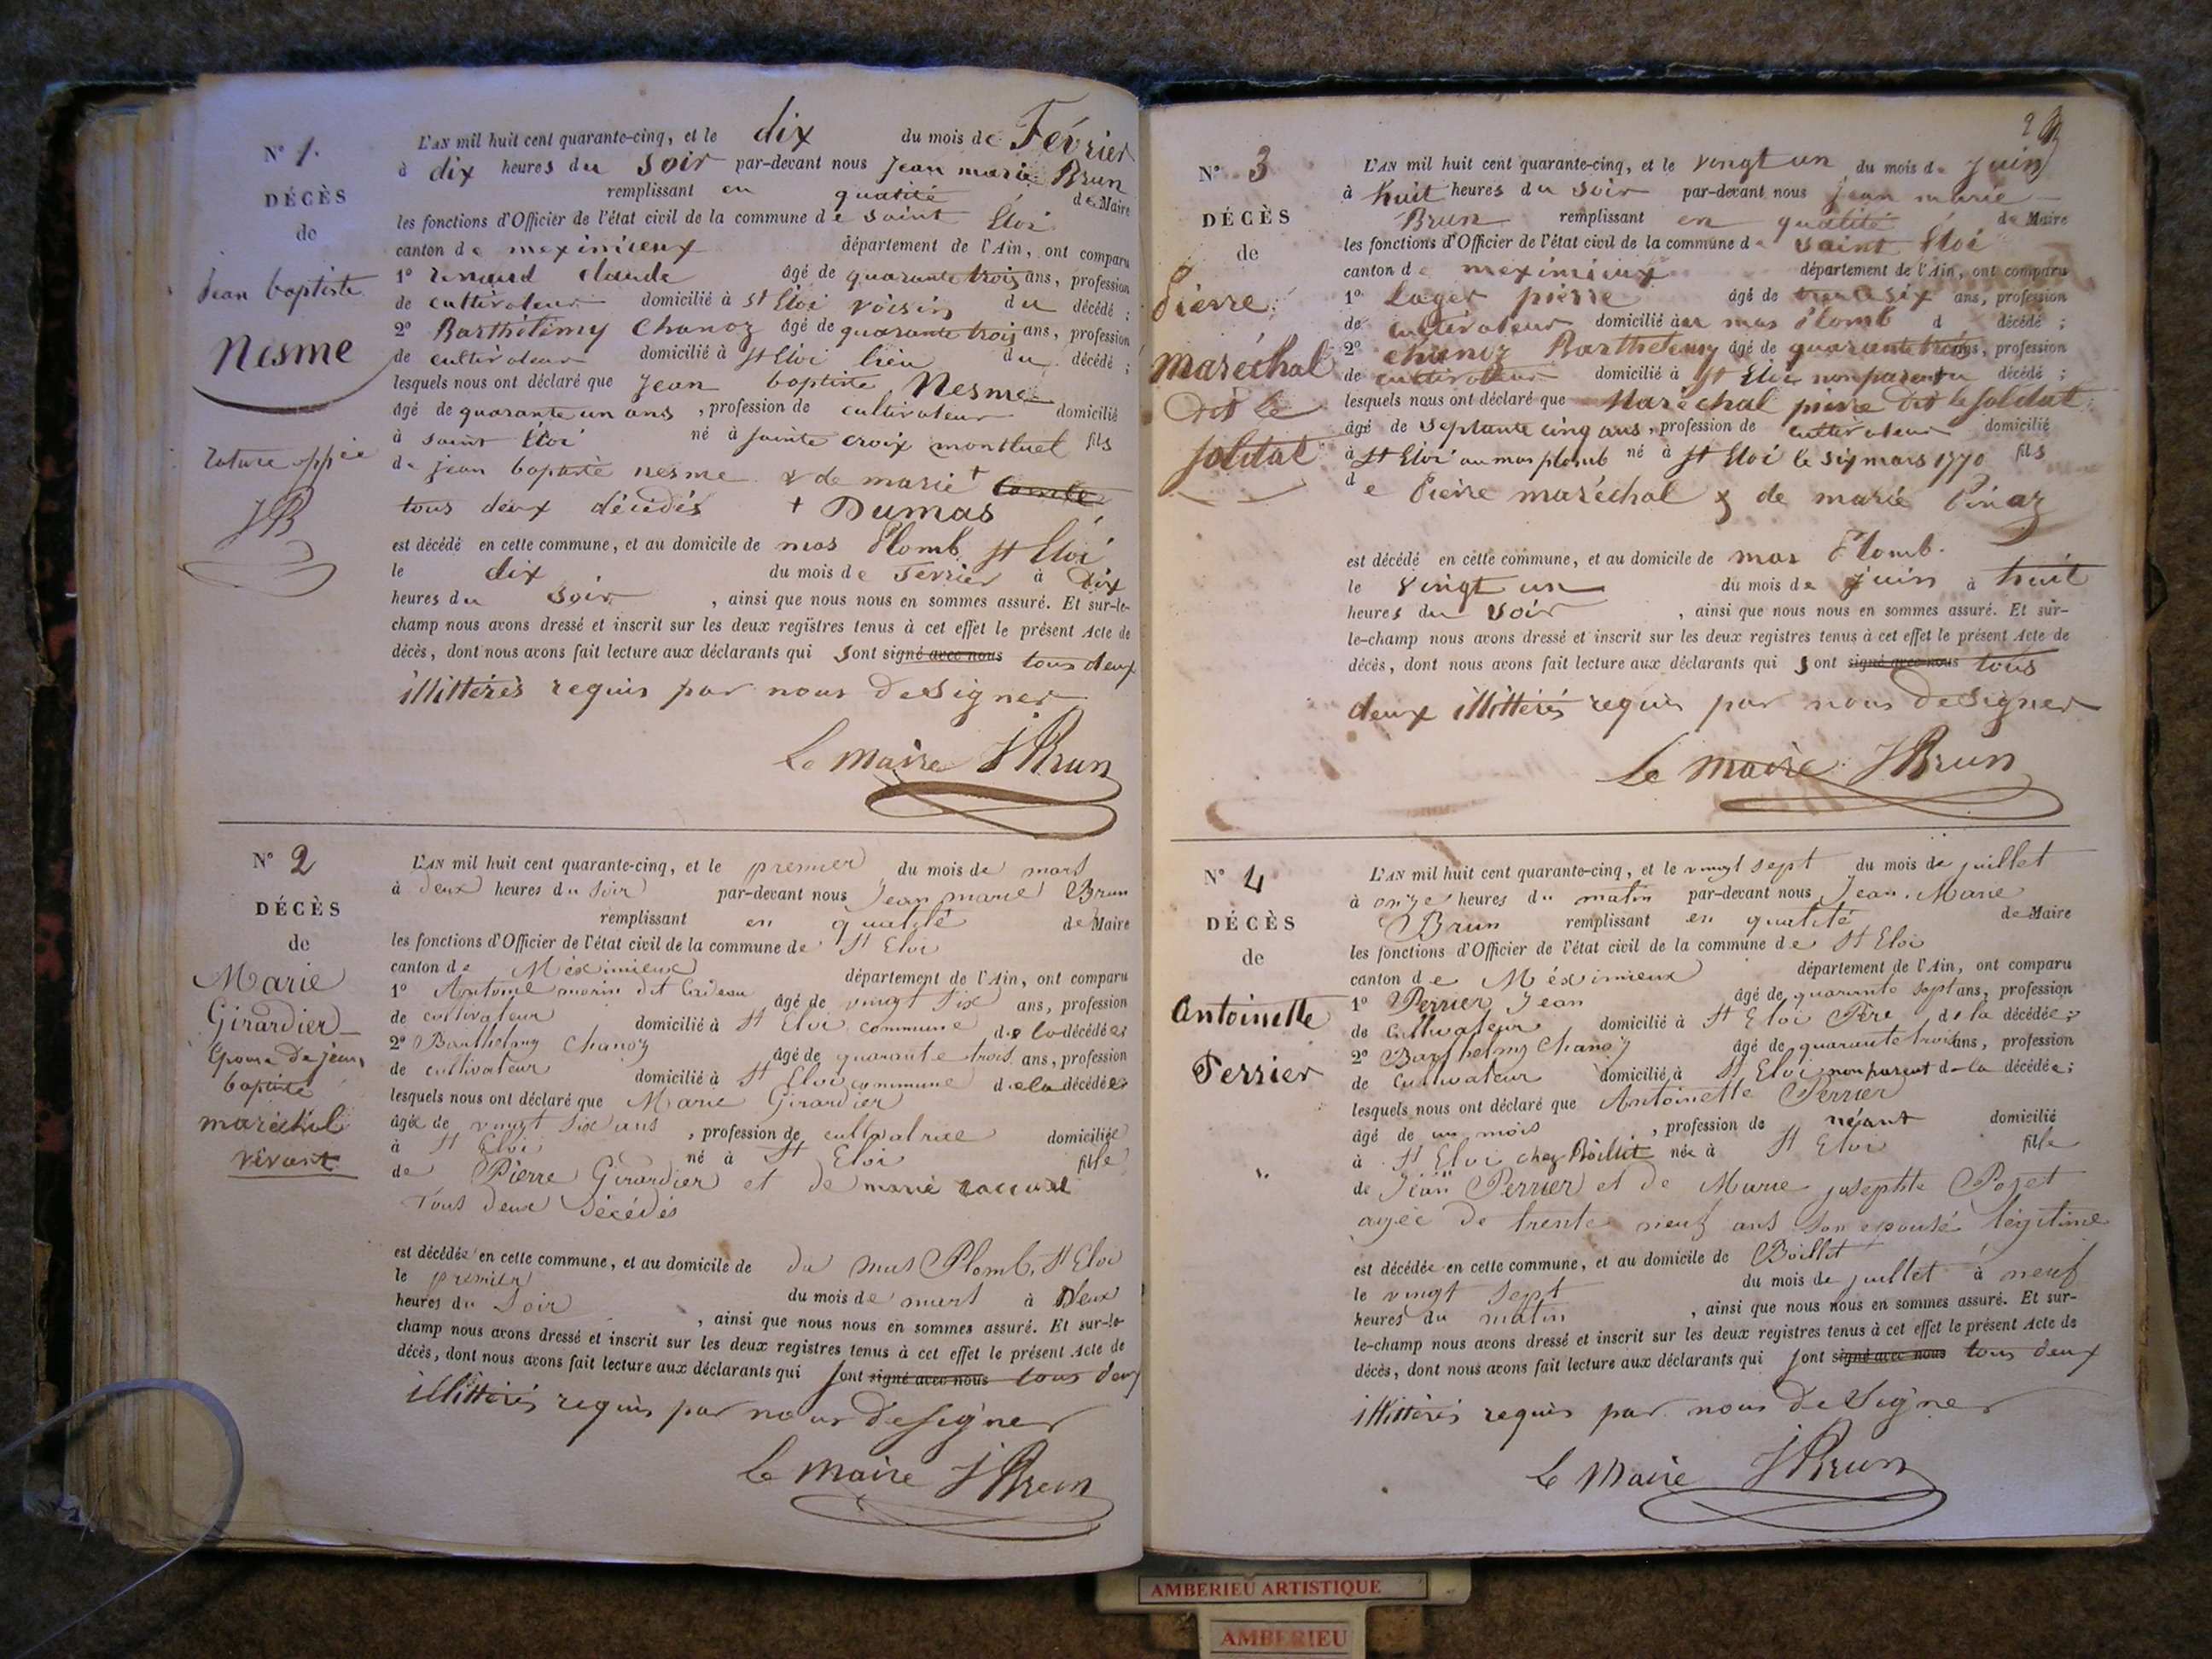 N° 1.
DÉCÈS
de
Jean baptiste
Nesme
rature appée
JB
L'AN mil huit cent quarante-cinq, et le dix du mois de Février
à dix heures du soir par-devant nous Jean marie Brun
remplissant en qualité de Maire
les fonctions d'Officier de l'état civil de la commune de saint Eloi
canton de meximieux département de l'Ain, ont comparu
1° renaud claude âgé de quarante trois ans, profession
de cultivateur domicilié à st Eloi voisin du décédé ;
2° Barthélemy Chanoz âgé de quarante trois ans, profession
de cultivateur domicilié à st Eloi lieu du décédé ;
lesquels nous ont déclaré que Jean baptiste Nesme
âgé de quarante un ans, profession de cultivateur domicilié
à saint Eloi né à sainte croix montluel fils
de jean baptiste nesme & de marie +
tous deux décédés + Dumas
est décédé en cette commune, et au domicile de mas Plomb st Eloi
le dix du mois de Fevrier à dix
heures du soir, ainsi que nous nous en sommes assuré. Et sur-le-
champ nous avons dressé et inscrit sur les deux registres tenus à cet effet le présent Acte de
décès, dont nous avons fait lecture aux déclarants qui sont signé avec nous tous deux
illittérés requis par nous de signer
Le Maire JBrun
N° 2
DÉCÈS
de
Marie
Girardier
Epouse de jean
baptiste
maréchal
vivant
L'AN mil huit cent quarante-cinq, et le premier du mois de mars
à deux heures du soir par-devant nous Jean marie Brun
remplissant en qualité de Maire
les fonctions d'Officier de l'état civil de la commune de St Eloi
canton de Méximieux département de l'Ain, ont comparu
1° Antoine morin dit Cadeau âgé de vingt six ans, profession
de cultivateur domicilié à St Eloi commune de la décédée
2° Barthelmy Chanoz âgé de quarante trois ans, profession
de cultivateur domicilié à St Eloi commune de la décédée
lesquels nous ont déclaré que Marie Girardier
âgée de vingt six ans, profession de cultivatrice domiciliée
à St Eloi né à St Eloi fille
de Pierre Girardier et de marie
Tous deux décédés
est décédée en cette commune, et au domicile de du mas Plomb, St Eloi
le premier du mois de mars à Deux
heures du soir, ainsi que nous nous en sommes assuré. Et sur-le-
champ nous avons dressé et inscrit sur les deux registres tenus à cet effet le présent Acte de
décès, dont nous avons fait lecture aux déclarants qui sont signé avec nous tous deux
illittérés requis par nous de signer
Le Maire JBrun
2
N° 3
DÉCÈS
de
Pierre
Maréchal
Dit le
soldat
L'AN mil huit cent quarante-cinq, et le vingt un du mois de Juin
à huit heures du soir par-devant nous jean marie
Brun remplissant en qualité de Maire
les fonctions d'Officier de l'état civil de la commune de saint Eloi
canton de meximieux département de l'Ain, ont comparu
1° Lager pierre âgé de trente six ans, profession
de cultivateur domicilié au mas Plomb d décédé ;
2° chanoz Barthelemy âgé de quarante trois ans, profession
de cultivateur domicilié à st Eloi non parent du décédé ;
lesquels nous ont déclaré que Maréchal pierre Dit le soldat
âgé de septante cinq ans, profession de cultivateur domicilié
à St Eloi au mas plomb né à St Eloi le six mars 1770 fils
de Pierre maréchal & de marie Pinaz
est décédé en cette commune, et au domicile de mas Plomb.
le vingt un du mois de juin à huit
heures du soir, ainsi que nous nous en sommes assuré. Et sur-
le-champ nous avons dressé et inscrit sur les deux registres tenus à cet effet le présent Acte de
décès, dont nous avons fait lecture aux déclarants qui sont signé avec nous tous
deux illittérés requis par nous de signer
Le Maire JBrun
N° 4
DÉCÈS
de
Antoinette
Perrier
L'AN mil huit cent quarante-cinq, et le vingt sept du mois de juillet
à onze heures du matin par-devant nous Jean. Marie
Brun remplissant en qualité de Maire
les fonctions d'Officier de l'état civil de la commune de St Eloi
canton de Méximieux département de l'Ain, ont comparu
1° Perrier Jean âgé de quarante sept ans, profession
de Cultivateur domicilié à St Eloi Père de la décédée ;
2° Barthelmy Chanoz âgé de quarante trois ans, profession
de Cultivateur domicilié à St Eloi non parent de la décédée ;
lesquels nous ont déclaré que Antoinette Perrier
âgé de un mois, profession de néant domicilié
à St Eloi chez Boillet née à St Eloi fille
de Jean Perrier et de Marie josephte Pojet
agée de trente neuf ans son epouse légitime
est décédée en cette commune, et au domicile de Boillet
le vingt sept du mois de juillet à neuf
heures du matin, ainsi que nous nous en sommes assuré. Et sur-
le-champ nous avons dressé et inscrit sur les deux registres tenus à cet effet le présent Acte de
décès, dont nous avons fait lecture aux déclarants qui sont signé avec nous tous deux
illittérés requis par nous de signer
Le Maire JBrun
AMBERIEU ARTISTIQUE
AMBERIEU